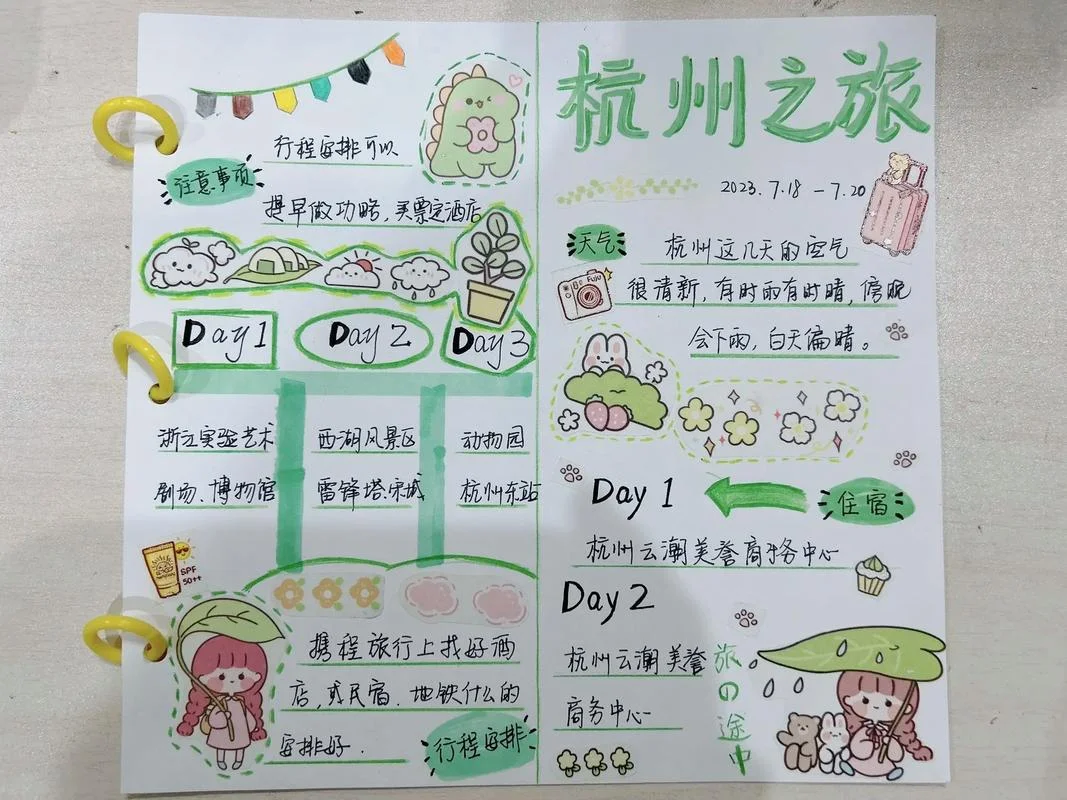 注意事项
行程安排可以
提早做功略,买票定酒店
Day 1
Day 2
Day 3
浙江实验艺术
剧场、博物馆
西湖风景区
雷锋塔、宋城
动物园
杭州东站
SPF
50++
携程旅行上找好酒
店,或民宿.地铁什么的
安排好.
行程安排
杭州之旅
2023.7.18 - 7.20
天气
杭州这几天的空气
很清新,有时雨有时晴,傍晚
会下雨,白天偏晴。
FUJI
Day 1
住宿
杭州云潮美誉商务中心
Day 2
杭州云潮美誉
商务中心
旅の途中